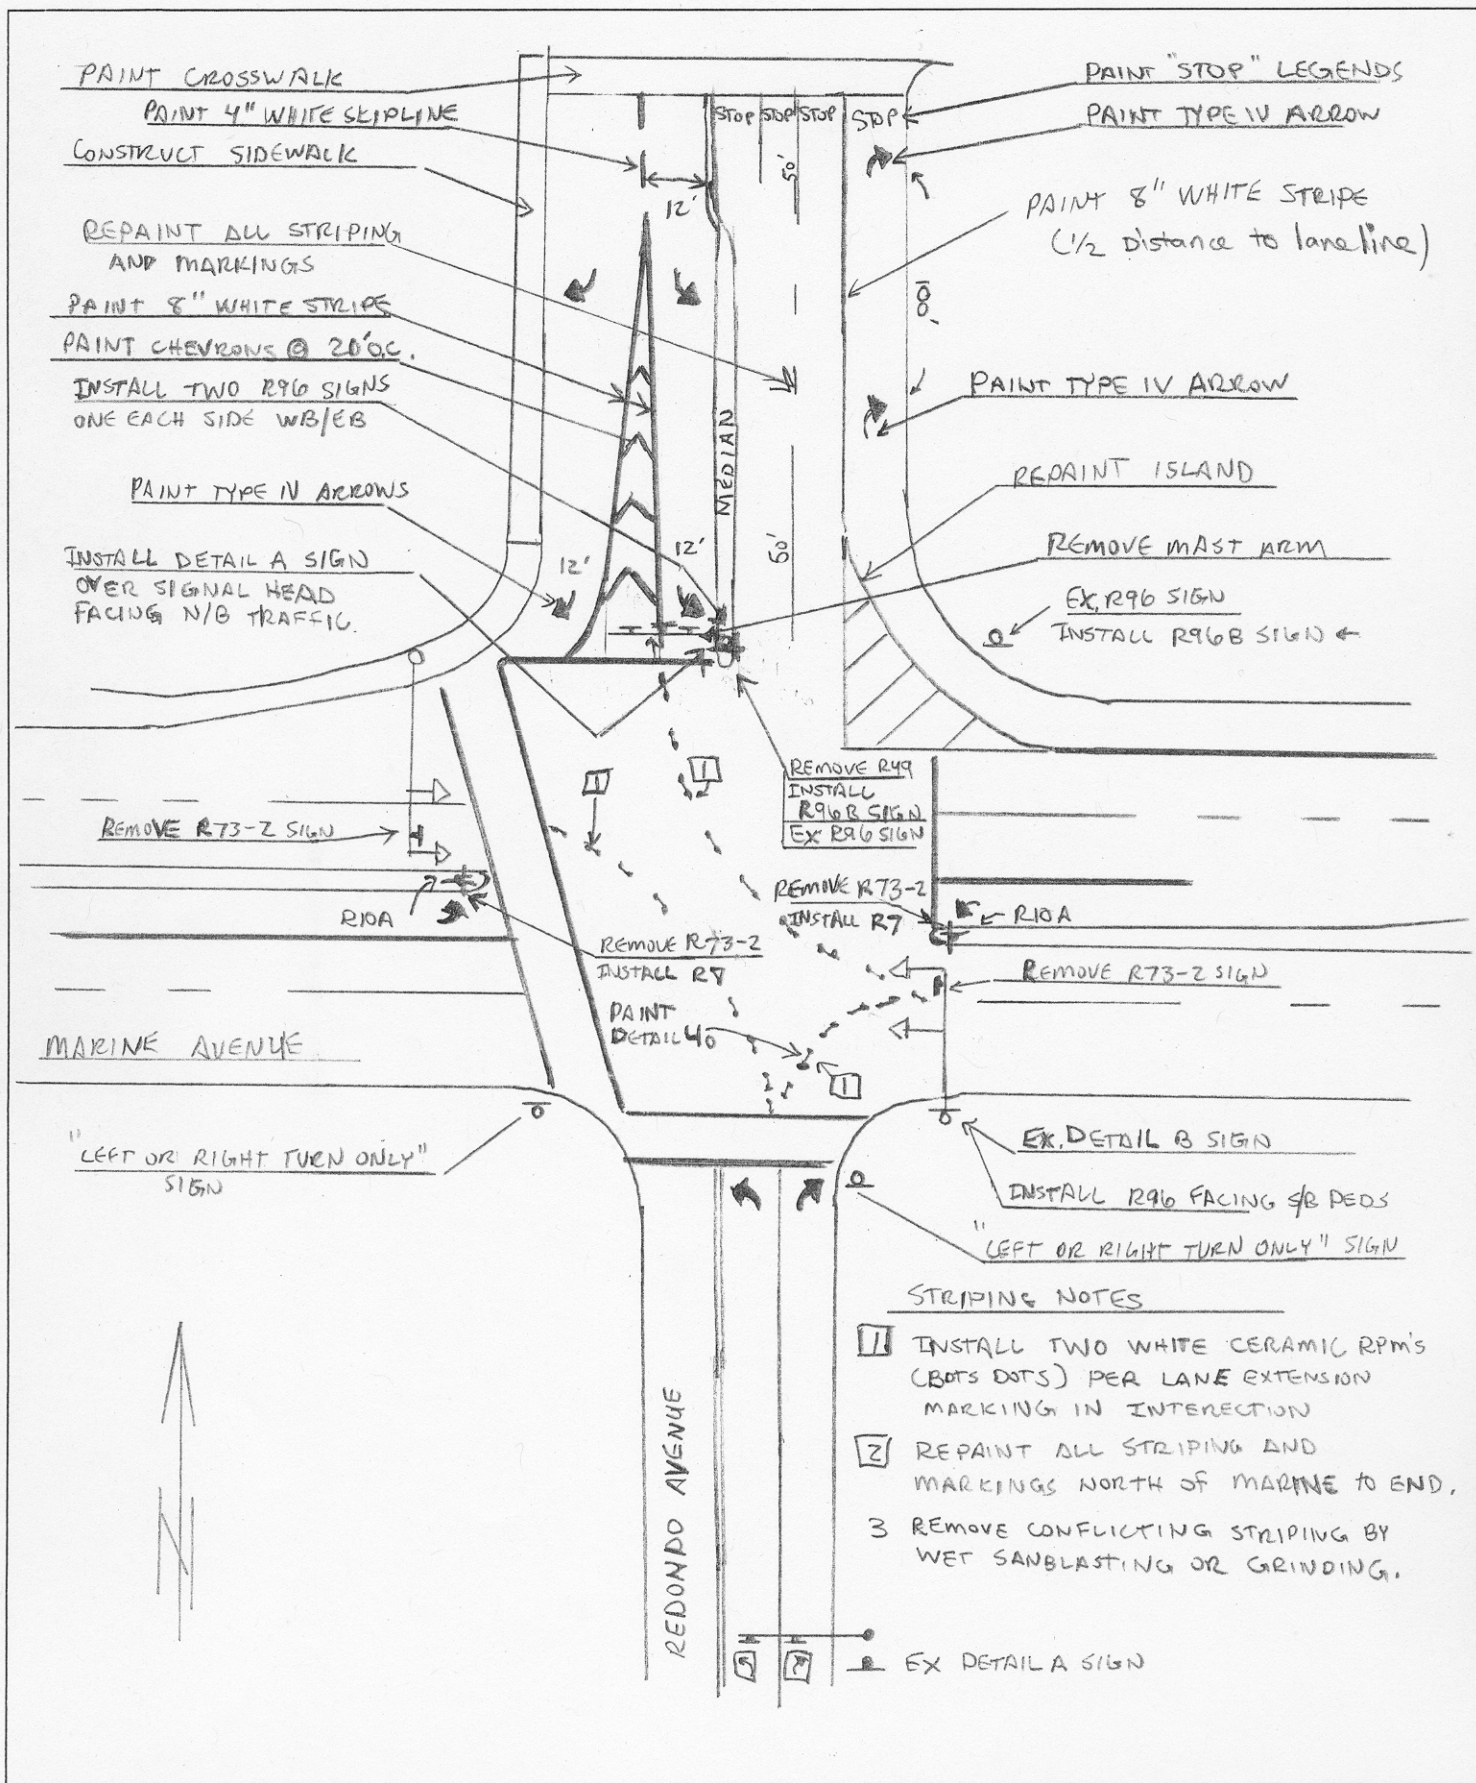 PAINT CROSSWALK
PAINT 4" WHITE SKIPLINE
CONSTRUCT SIDEWALK
REPAINT ALL STRIPING
AND MARKINGS
PAINT 8" WHITE STRIPE
PAINT CHEVRONS @ 20' O.C.
INSTALL TWO R96 SIGNS
ONE EACH SIDE WB/EB
PAINT TYPE IV ARROWS
INSTALL DETAIL A SIGN
OVER SIGNAL HEAD
FACING N/B TRAFFIC.
STOP STOP STOP STOP
50'
12'
MEDIAN
12'
12'
60'
PAINT "STOP" LEGENDS
PAINT TYPE IV ARROW
PAINT 8" WHITE STRIPE
(1/2 Distance to lane line)
PAINT TYPE IV ARROW
REPAINT ISLAND
REMOVE MAST ARM
EX. R96 SIGN
INSTALL R96B SIGN ←
1
1
REMOVE R49
INSTALL
R96B SIGN
EX R96 SIGN
REMOVE R73-2 SIGN
R10A
REMOVE R73-2
INSTALL R7
R10A
REMOVE R73-2
INSTALL R7
REMOVE R73-2 SIGN
PAINT
DETAIL 40
1
MARINE AVENUE
"LEFT OR RIGHT TURN ONLY"
SIGN
EX. DETAIL B SIGN
INSTALL R96 FACING S/B PEDS
"LEFT OR RIGHT TURN ONLY" SIGN
STRIPING NOTES
1 INSTALL TWO WHITE CERAMIC RPM'S
(BOTS DOTS) PER LANE EXTENSION
MARKING IN INTERECTION
2 REPAINT ALL STRIPING AND
MARKINGS NORTH OF MARINE TO END.
3 REMOVE CONFLICTING STRIPING BY
WET SANBLASTING OR GRINDING.
REDONDO AVENUE
N
EX DETAIL A SIGN